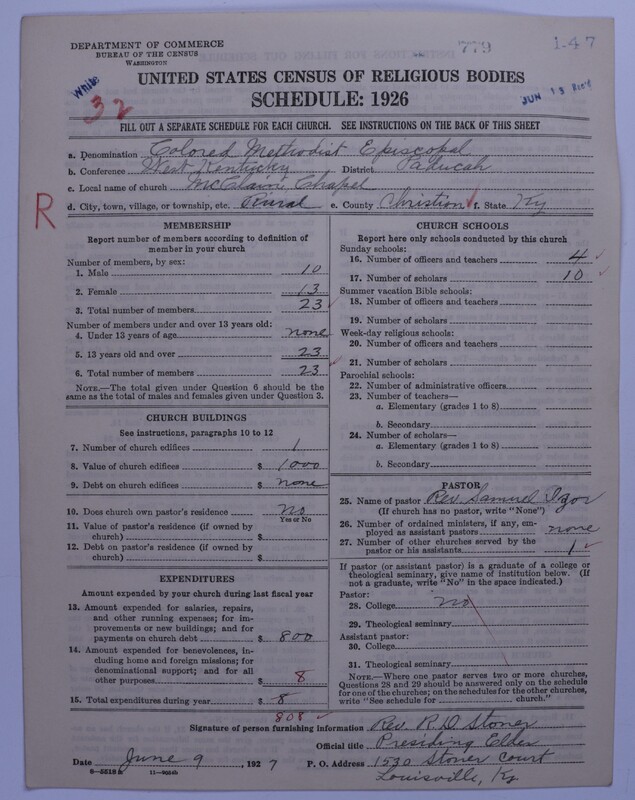 DEPARTMENT OF COMMERCE
BUREAU OF THE CENSUS
WASHINGTON
779
1-47
White
32
JUN 13 Rec'd
UNITED STATES CENSUS OF RELIGIOUS BODIES
SCHEDULE: 1926
FILL OUT A SEPARATE SCHEDULE FOR EACH CHURCH. SEE INSTRUCTIONS ON THE BACK OF THIS SHEET
a. Denomination Colored Methodist Episcopal
b. Conference West Kentucky District Paducah
c. Local name of church McClain Chapel
R
d. City, town, village, or township, etc. Rural e. County Christian f. State Ky
MEMBERSHIP
Report number of members according to definition of
member in your church
Number of members, by sex:
1. Male 10
2. Female 13
3. Total number of members 23
Number of members under and over 13 years old:
4. Under 13 years of age none
5. 13 years old and over 23
6. Total number of members 23
NOTE.—The total given under Question 6 should be
same as the total of males and females given under Question 3.
CHURCH BUILDINGS
See instructions, paragraphs 10 to 12
7. Number of church edifices 1
8. Value of church edifices $ 1000
9. Debt on church edifices $ none
10. Does church own pastor's residence? No
Yes or No
11. Value of pastor's residence (if owned by
church) $
12. Debt on pastor's residence (if owned by
church) $
EXPENDITURES
Amount expended by your church during last fiscal year
13. Amount expended for salaries, repairs,
and other running expenses; for im-
provements or new buildings; and for
payments on church debt $ 800
14. Amount expended for benevolences, in-
cluding home and foreign missions; for
denominational support; and for all
other purposes $ 8
15. Total expenditures during year $ 8
808
CHURCH SCHOOLS
Report here only schools conducted by this church
Sunday schools:
16. Number of officers and teachers 4
17. Number of scholars 10
Summer vacation Bible schools:
18. Number of officers and teachers
19. Number of scholars
Week-day religious schools:
20. Number of officers and teachers
21. Number of scholars
Parochial schools:
22. Number of administrative officers
23. Number of teachers—
a. Elementary (grades 1 to 8)
b. Secondary
24. Number of scholars—
a. Elementary (grades 1 to 8)
b. Secondary
PASTOR
25. Name of pastor Rev Samuel
(If church has no pastor, write "None")
26. Number of ordained ministers, if any, em-
ployed as assistant pastors none
27. Number of other churches served by the
pastor or his assistants 1
If pastor (or assistant pastor) is a graduate of a college or
theological seminary, give name of institution below. (If
not a graduate, write "No" in the space indicated.)
Pastor:
28. College no
29. Theological seminary
Assistant pastor:
30. College
31. Theological seminary
NOTE.—Where one pastor serves two or more churches,
Questions 28 and 29 should be answered only on the schedule
for one of the churches; on the schedules for the other churches,
write "See schedule for church."
Signature of person furnishing information Rev. R. D. Stoner
Official title Presiding Elder
Date June 9, 1927 P. O. Address 1530 Stoner Court
Louisville, Ky